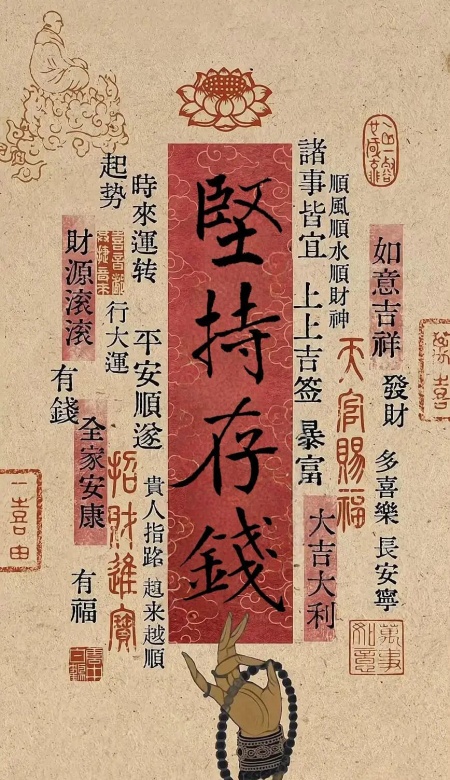 堅持存錢
如意吉祥
發財
多喜樂
長安寧
順風順水順財神
天官賜福
萬事
如意
諸事皆宜
上上吉签
暴富
大吉大利
時來運转
平安順遂
貴人指路
越来越順
起势
喜音歡
易捷音來
行大運
招財進寶
財源滚滚
有錢
全家安康
有福
一喜由